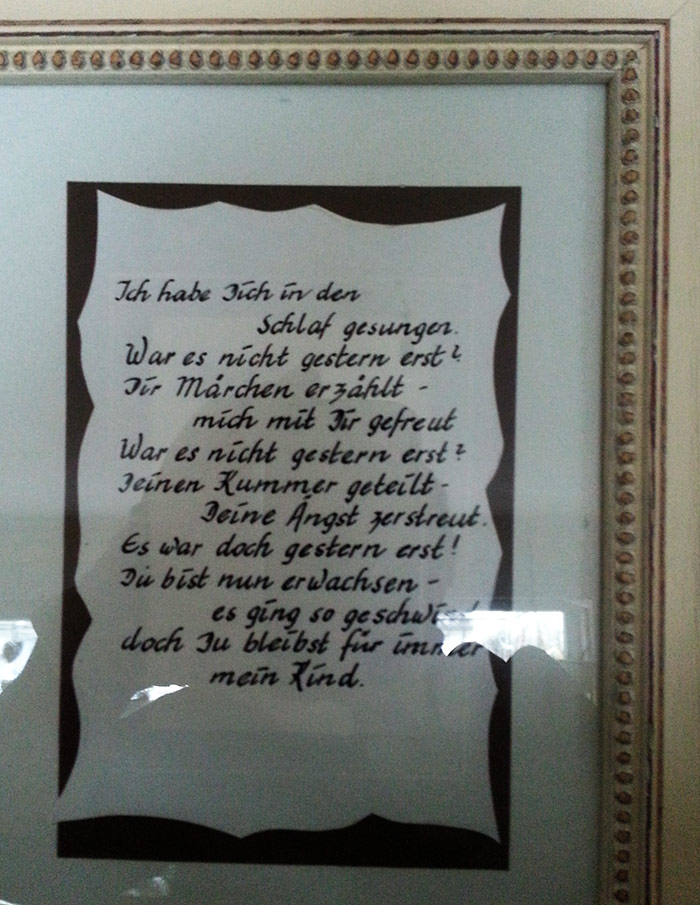 Ich habe Dich in den
Schlaf gesungen.
War es nicht gestern erst?
Dir Märchen erzählt -
mich mit Dir gefreut
War es nicht gestern erst?
Deinen Kummer geteilt -
Deine Angst zerstreut.
Es war doch gestern erst!
Du bist nun erwachsen -
es ging so geschwind
doch Du bleibst für immer
mein Kind.